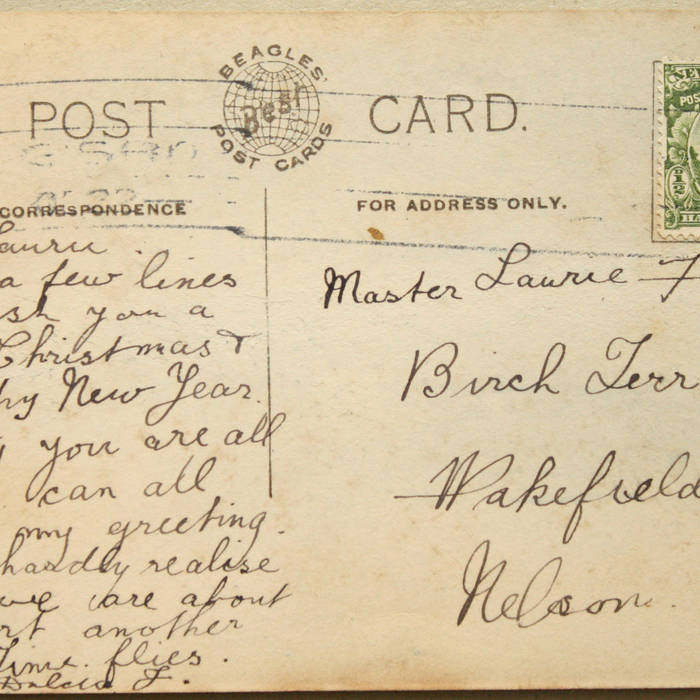 BEAGLES'
Best
POST CARDS
POST CARD.
CORRESPONDENCE
FOR ADDRESS ONLY.
NEW
POS
Laurie
a few lines
ish you a
Christmas &
py New Year.
you are all
can all
my greeting.
hardly realise
we are about
rt another
Time flies.
F.
Master Laurie F
Birch Terr
Wakefield
Nelson.